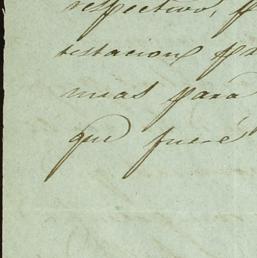 respectivo, p
testacion pr
mas para
que fueré